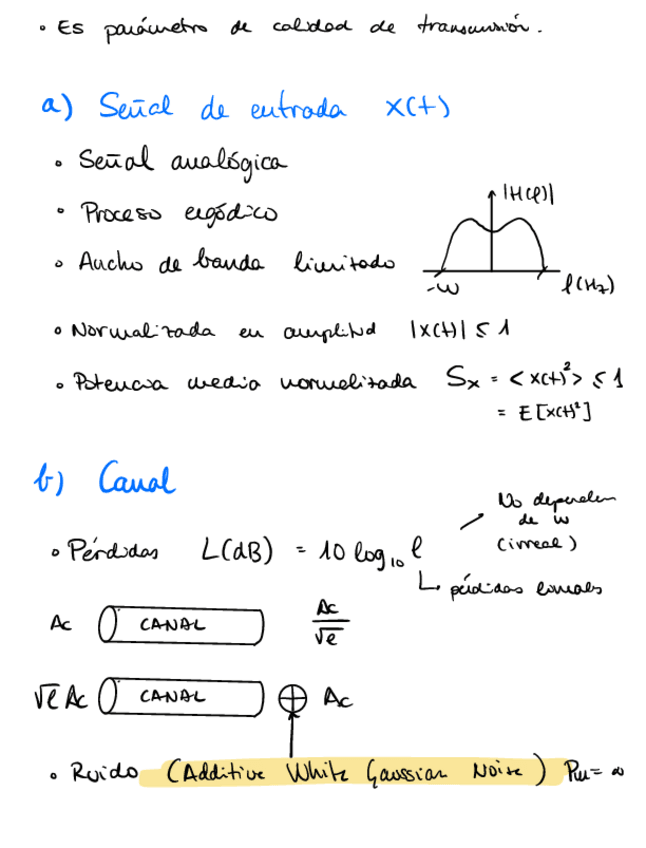 • Es parámetro de calidad de transmisión.
a) Señal de entrada x(t)
• Señal analógica
• Proceso ergódico
|H(f)|
• Ancho de banda limitado
-W
f(Hz)
• Normalizada en amplitud |x(t)| ≤ 1
• Potencia media normalizada Sx = <x(t)²> ≤ 1
= E[x(t)²]
b) Canal
No dependen
de w
(irreal)
• Pérdidas L(dB) = 10 log₁₀ l
↳ pérdidas lineales
Ac CANAL Ac/√l
√l Ac CANAL ⊕ Ac
• Ruido (Additive White Gaussian Noise) Pn = ∞